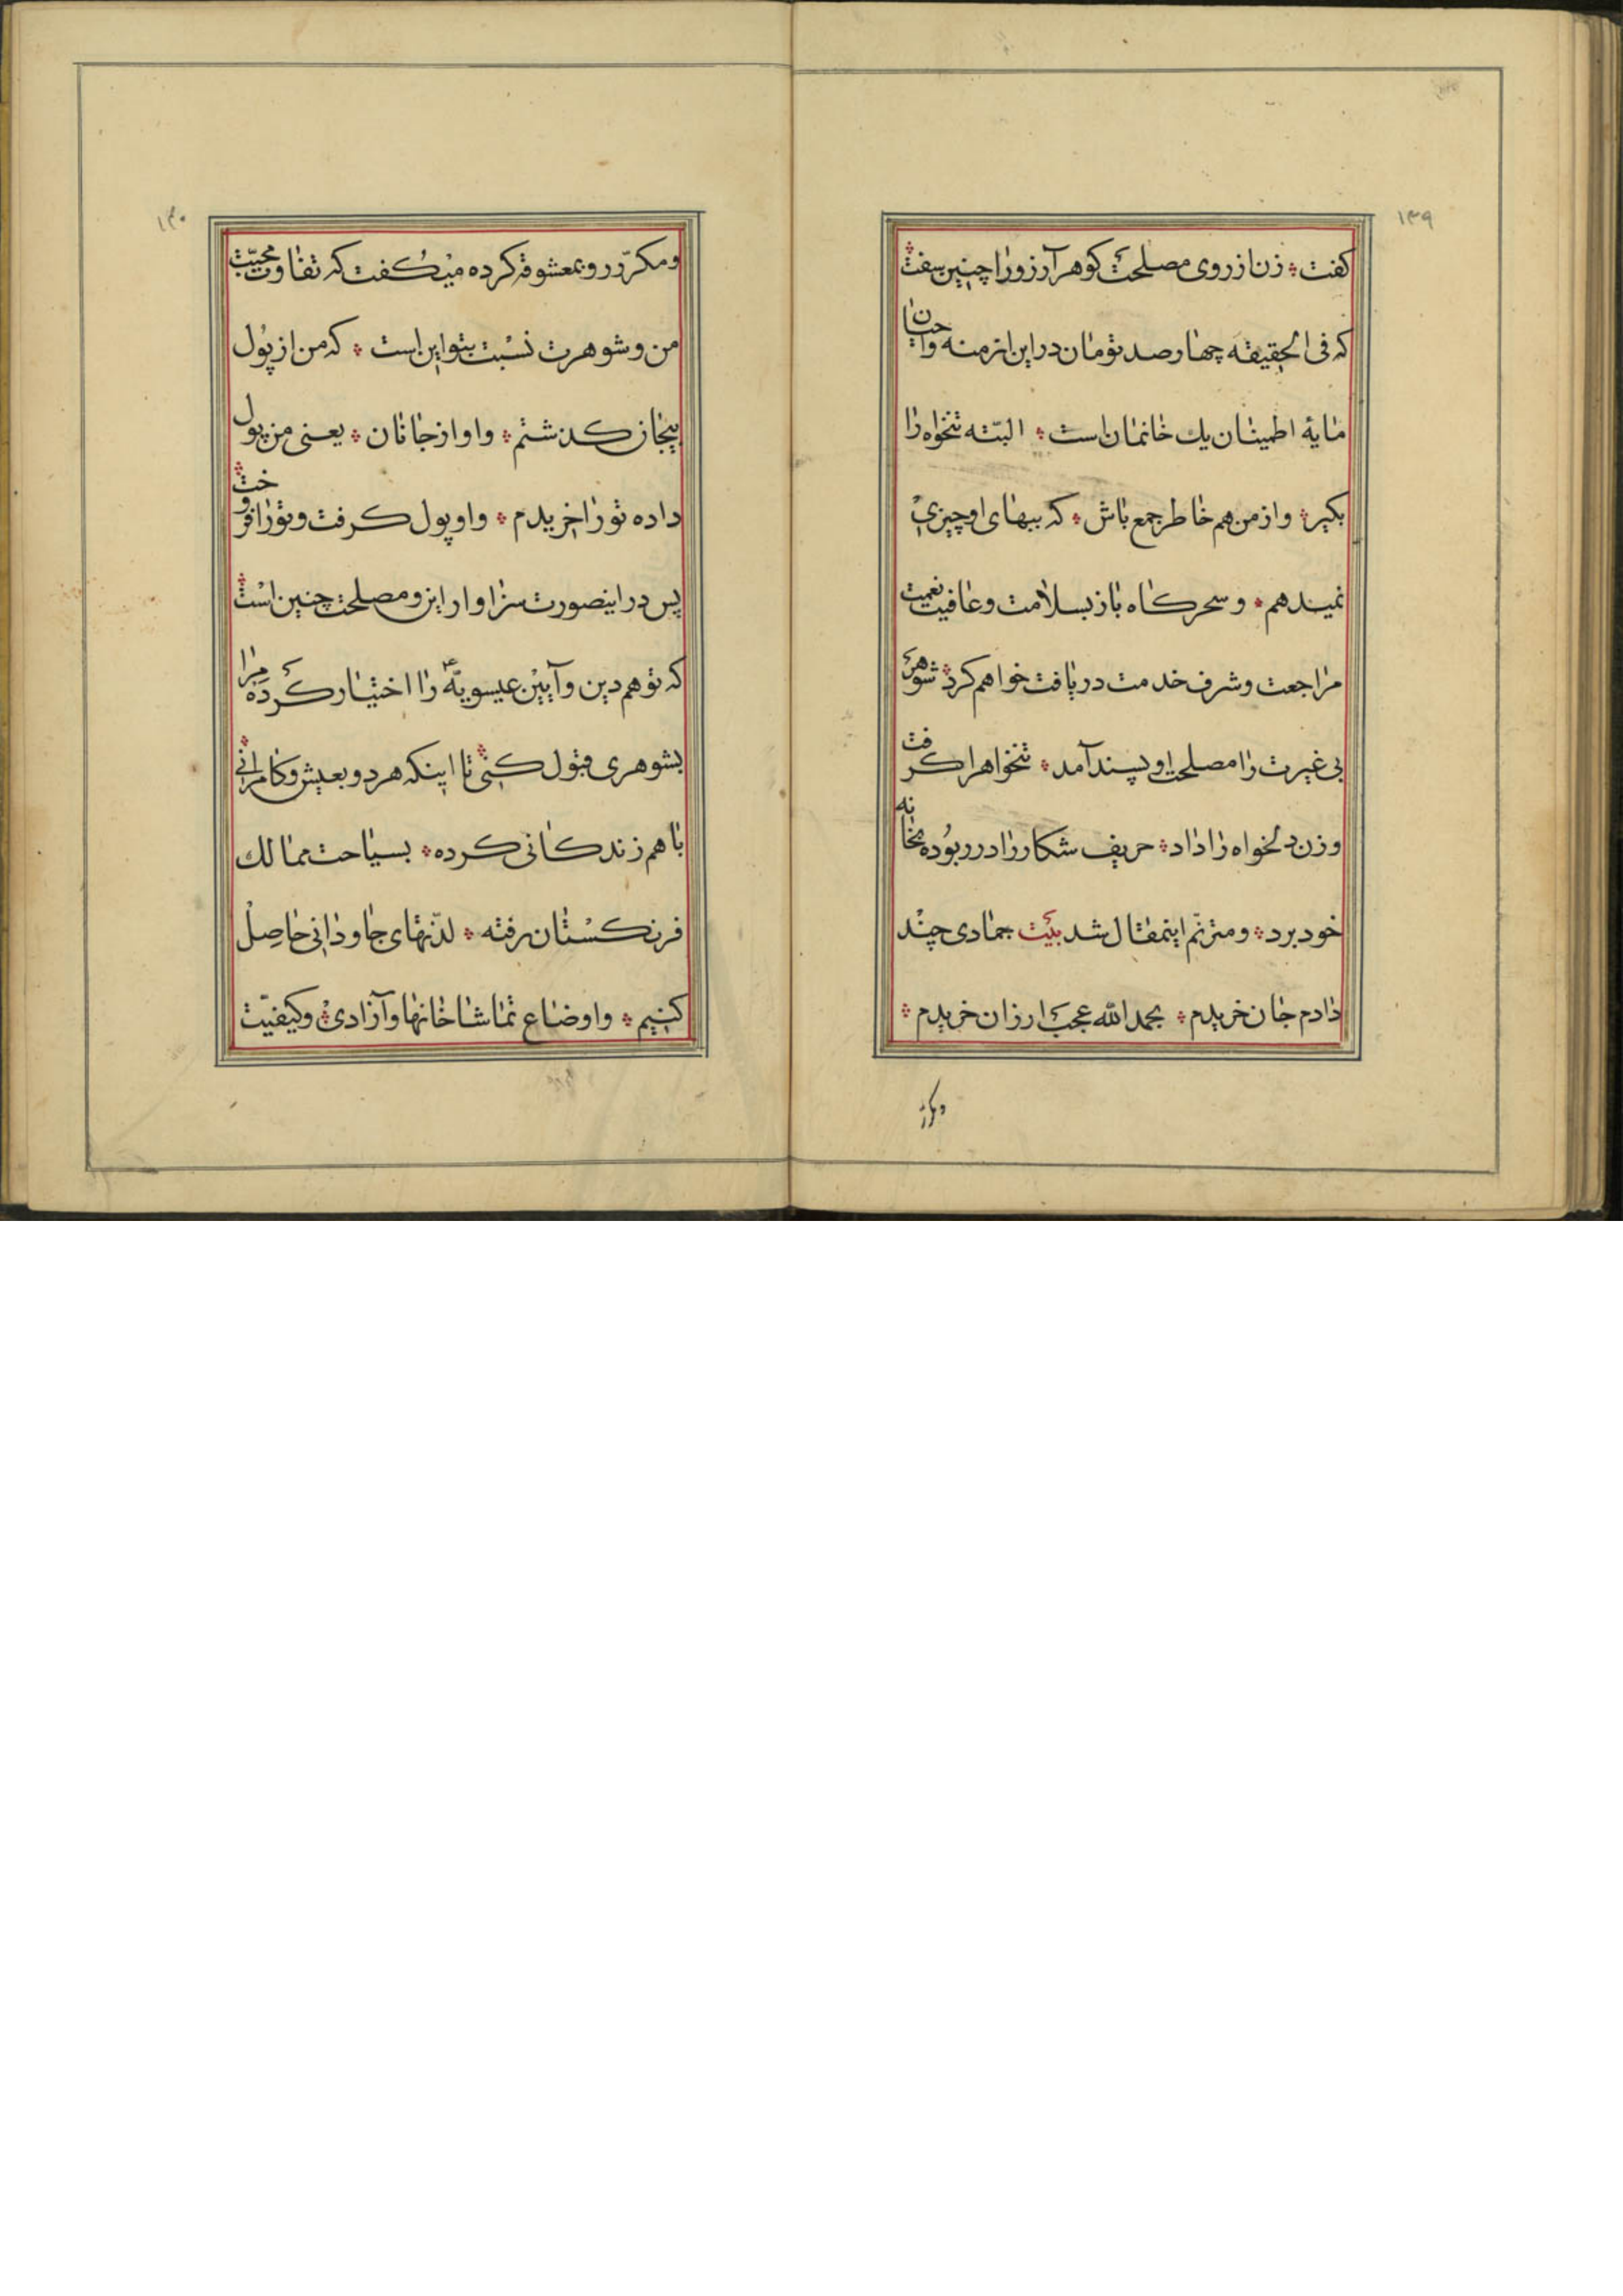 ۱۳۹
کفت ؞ زن از روی مصلحت کوهر آرزو را چنین سفت ؞
که فی الحقیقه چهار صد تومان در این ازمنه واحیان
مایهٔ اطمینان یك خانمان است ؞ البتّه تنخواه را
بکیر ؞ و از من هم خاطر جمع باش ؞ که ببهای او چیزی
نمیدهم ؞ و سحرکاه باز بسلامت و عافیت نعمیت
مراجعت و شرف خدمت دریافت خواهم کرد ؞ شوهر
بی غیرت را مصلحت او پسند آمد ؞ تنخواه را کرفت
و زن دلخواه را داد ؞ حریف شکار را در ربوده بخانه
خود برد ؞ و مترنّم اینمقال شد بیت جمادی چند
دادم جان خریدم ؞ بحمد الله عجب ارزان خریدم ؞
و مکرّر
۱۴۰
و مکرّر رو بمعشوقه کرده میکفت که تفاوت محبّت
من و شوهرت نسبت بتو این است ؞ که من از پول
بیجان کذشتم ؞ و او از جانان ؞ یعنی من پول
داده تو را خریدم ؞ و او پول کرفت و تو را فروخت ؞
پس در اینصورت سزاوار این و مصلحت چنین است ؞
که تو هم دین و آیین عیسویّه را اختیار کرده مرا
بشوهری قبول کنی ؞ تا اینکه هر دو بعیش و کامرانی ؞
با هم زندکانی کرده ؞ بسیاحت ممالك
فرنکستان رفته ؞ لذّتهای جاودانی حاصل
کنیم ؞ و اوضاع تماشاخانها و آزادی ؞ و کیفیّت